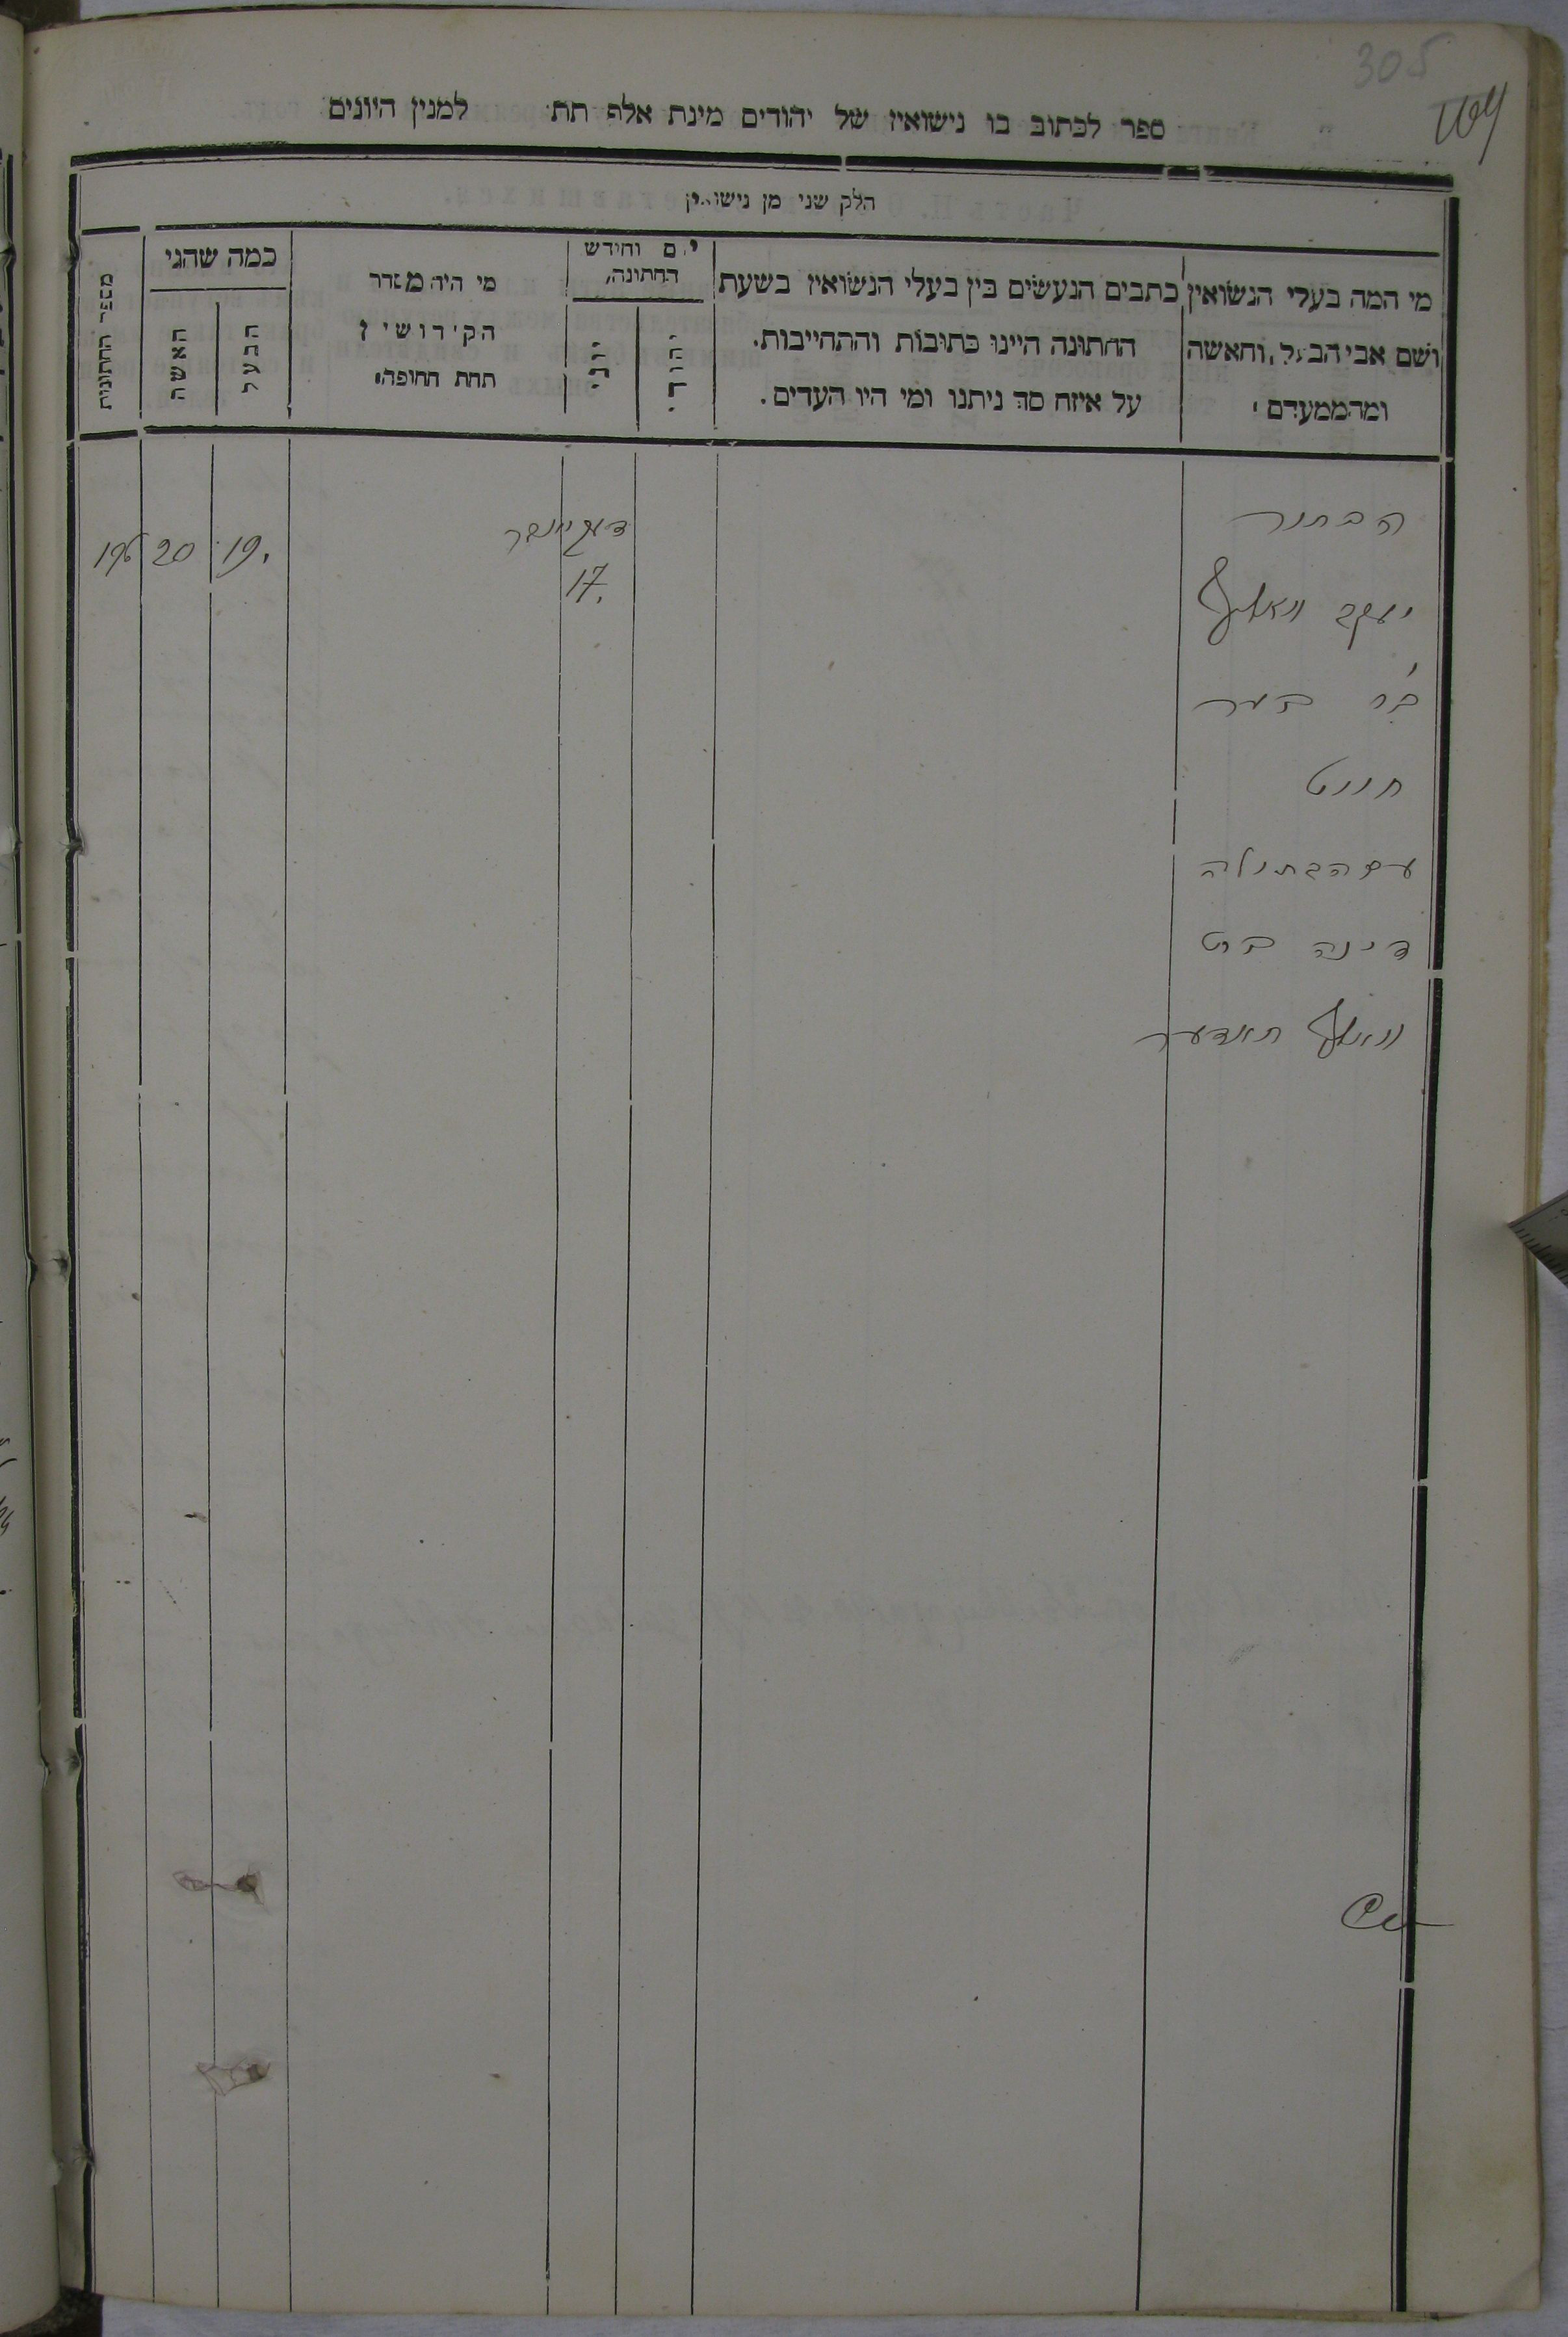 305
164
ספר לכתוב בו נישואין של יהודים מינת אלף תת למנין היונים
חלק שני מן נישואין
מי המה בעלי הנשואין
ושם אבי הבעל, והאשה
ומהממעדם
כתבים הנעשים בין בעלי הנשואין בשעת
החתונה היינו כתובות והתחייבות.
על איזה סך ניתנו ומי היו העדים.
יום וחודש
החתונה,
יהודי.
יוני
מי היה מסדר
הקידושין
תחת החופה
כמה שהני
הבעל
האשה
מספר החתונות
הבחור
יעקב וואלף
ב״ר בער
חוונט
עם הבתולה
דינה בת
וואלף
17.
19.
20
196